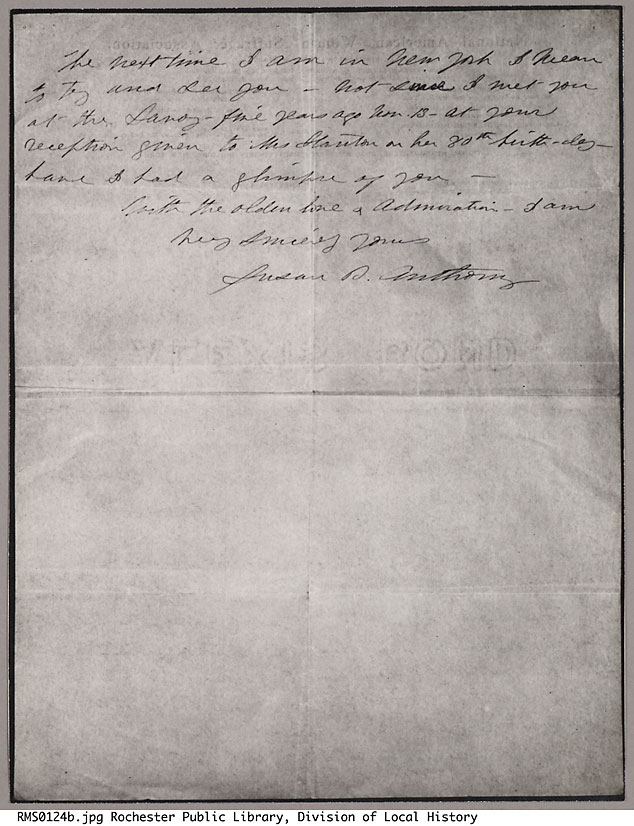 The next time I am in New York I mean
to try and see you - not since I met you
at the Savoy - five years ago Nov. 13 - at your
reception given to Mrs Stanton on her 80th birth-day -
have I had a glimpse of you -
With the olden love & admiration - I am
Very sincerely yours
Susan B. Anthony
RMS0124b.jpg Rochester Public Library, Division of Local History